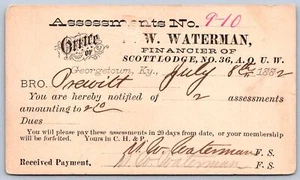 Assessments No. 9-10
Office OF W. WATERMAN,
FINANCIER OF
SCOTT LODGE, NO. 36, A. O. U. W.
Georgetown, Ky., July 8th 1882
BRO. Prewitt
You are hereby notified of 2 assessments
amounting to 2.00
Dues
You will please pay these assessments in 20 days from date, or your membership
will be forfeited. Yours in C. H. & P.
W. W. Waterman F. S.
Received Payment, W. W. Waterman F. S.